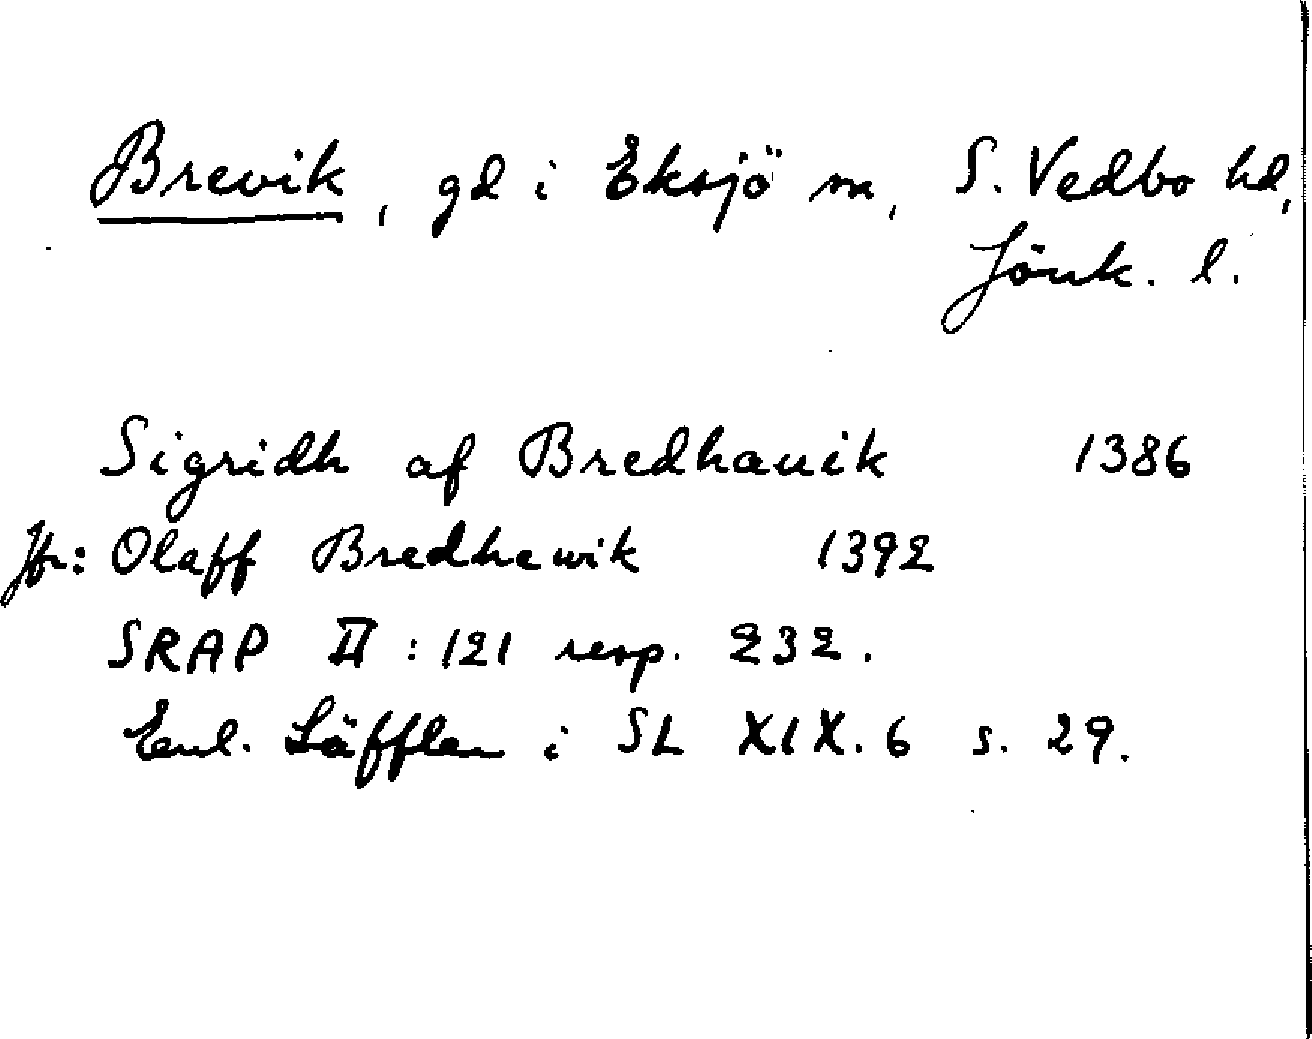 Brevik, gd i Eksjö sn, S. Vedbo hd,
Jönk. l.
Sigridh af Bredhauik 1386
Jfr: Olaff Bredhewik 1392
SRAP II : 121 resp. 232.
Enl. Läffler i SL XIX. 6 s. 29.